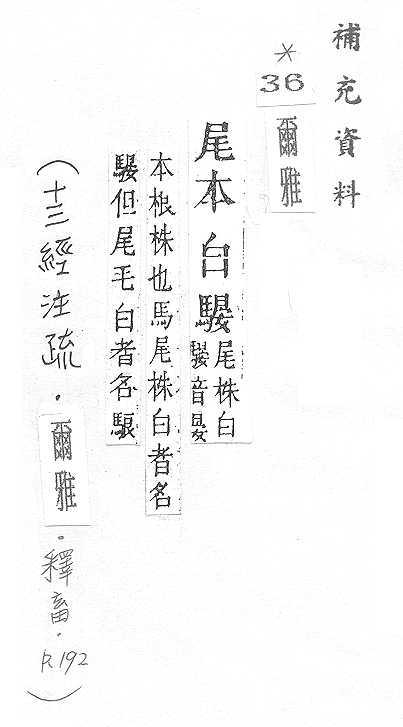 補充資料
*
36
爾雅
尾本白騴
尾株白
騴音晏
本根株也馬尾株白者名
騴但尾毛白者名駺
(十三經注疏．爾雅．釋畜．P.192)